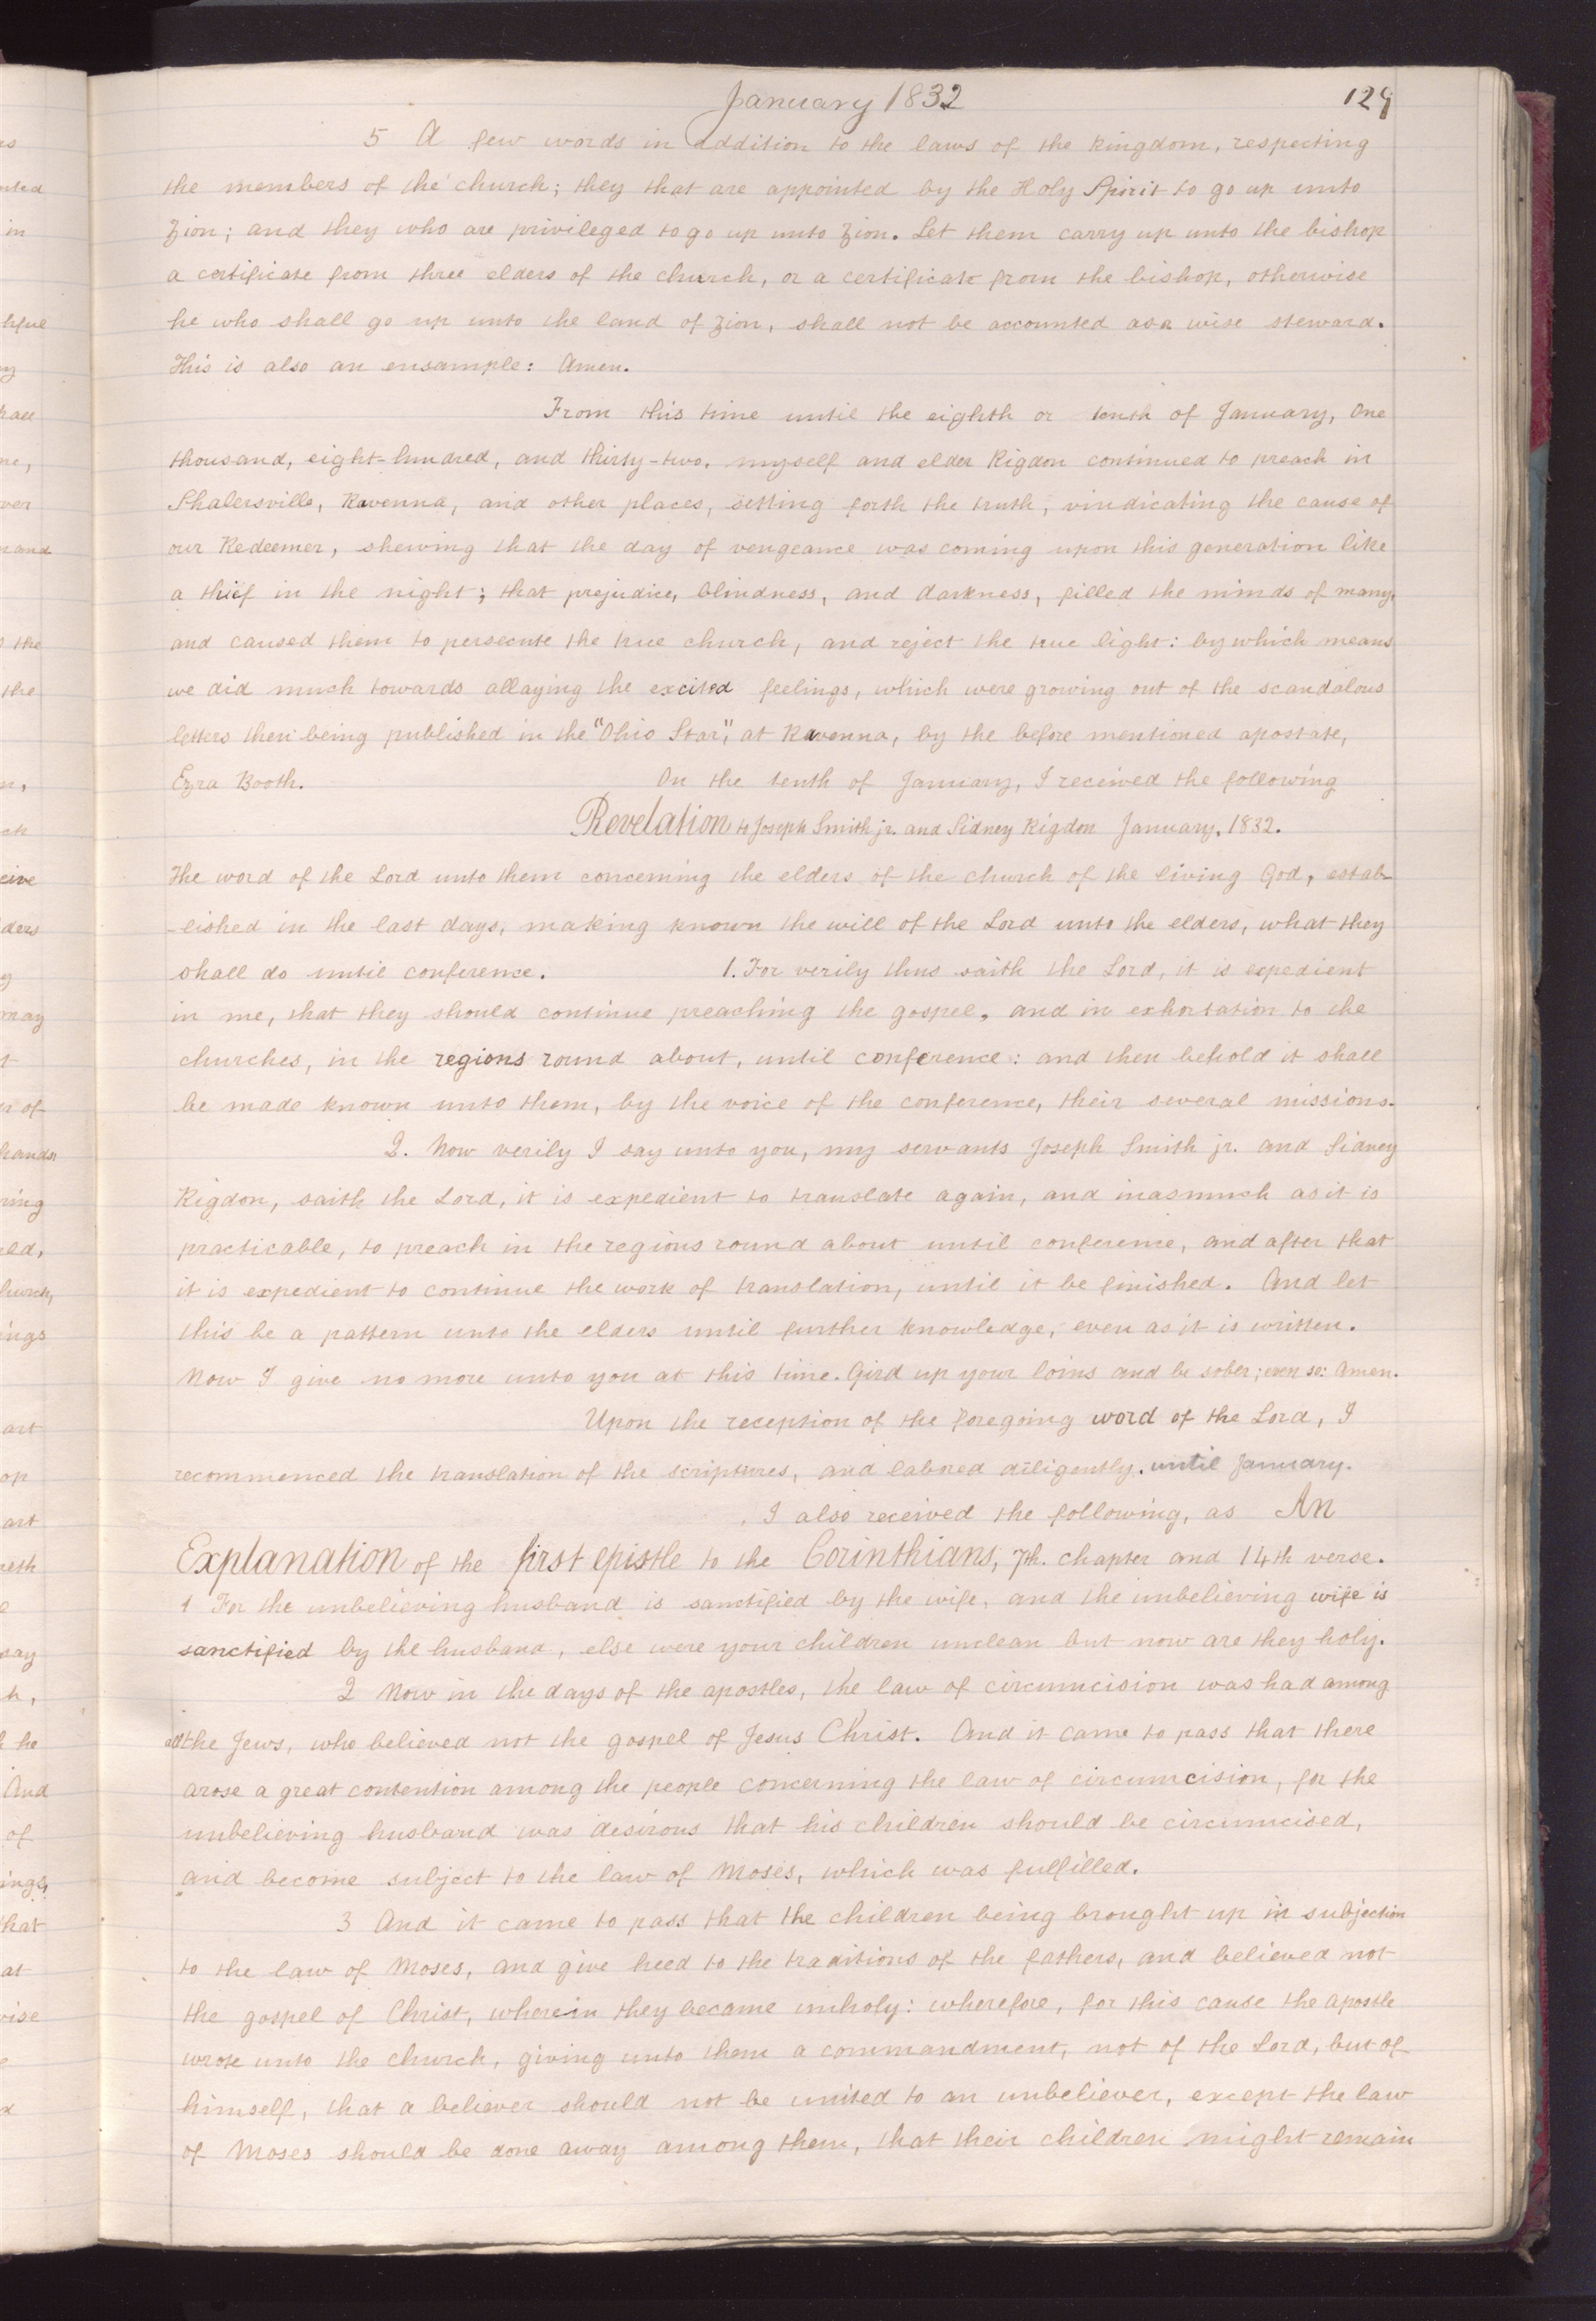 January 1832
129
5 A few words in addition to the laws of the kingdom, respecting
the members of the church; they that are appointed by the Holy Spirit to go up unto
Zion; and they who are privileged to go up unto Zion. Let them carry up unto the bishop
a certificate from three elders of the church, or a certificate from the bishop, otherwise
he who shall go up unto the land of Zion, shall not be accounted as a wise steward.
This is also an ensample: Amen.
From this time until the eighth or tenth of January, One
thousand, eight-hundred, and thirty-two, myself and elder Rigdon continued to preach in
Shalersville, Ravenna, and other places, setting forth the truth; vindicating the cause of
our Redeemer, shewing that the day of vengeance was coming upon this generation like
a thief in the night; that prejudice, blindness, and darkness, filled the minds of many,
and caused them to persecute the true church, and reject the true light: by which means
we did much towards allaying the excited feelings, which were growing out of the scandalous
letters then being published in the "Ohio Star", at Ravenna, by the before mentioned apostate,
Ezra Booth. On the tenth of January, I received the following
Revelation to Joseph Smith jr. and Sidney Rigdon January, 1832.
The word of the Lord unto them concerning the elders of the church of the living God, estab-
-lished in the last days, making known the will of the Lord unto the elders, what they
shall do until conference. 1. For verily thus saith the Lord, it is expedient
in me, that they should continue preaching the gospel, and in exhortation to the
churches, in the regions round about, until conference: and then behold it shall
be made known unto them, by the voice of the conference, their several missions.
2. Now verily I say unto you, my servants Joseph Smith jr. and Sidney
Rigdon, saith the Lord, it is expedient to translate again, and inasmuch as it is
practicable, to preach in the regions round about until conference, and after that
it is expedient to continue the work of translation, until it be finished. And let
this be a pattern unto the elders until further knowledge, even as it is written.
Now I give no more unto you at this time. Gird up your loins and be sober; even so: Amen.
Upon the reception of the foregoing word of the Lord, I
recommenced the translation of the scriptures, and labored diligently. until January.
I also received the following, as An
Explanation of the first epistle to the Corinthians, 7th. chapter and 14th verse.
1 For the unbelieving husband is sanctified by the wife, and the unbelieving wife is
sanctified by the husband, else were your children unclean but now are they holy.
2 Now in the days of the apostles, the law of circumcision was had among
all the Jews, who believed not the gospel of Jesus Christ. And it came to pass that there
arose a great contention among the people concerning the law of circumcision, for the
unbelieving husband was desirous that his children should be circumcised,
and become subject to the law of Moses, which was fulfilled.
3 And it came to pass that the children being brought up in subjection
to the law of Moses, and give heed to the traditions of the fathers, and believed not
the gospel of Christ, wherein they became unholy: wherefore, for this cause the apostle
wrote unto the church, giving unto them a commandment, not of the Lord, but of
himself, that a believer should not be united to an unbeliever, except the law
of Moses should be done away among them, that their children might remain